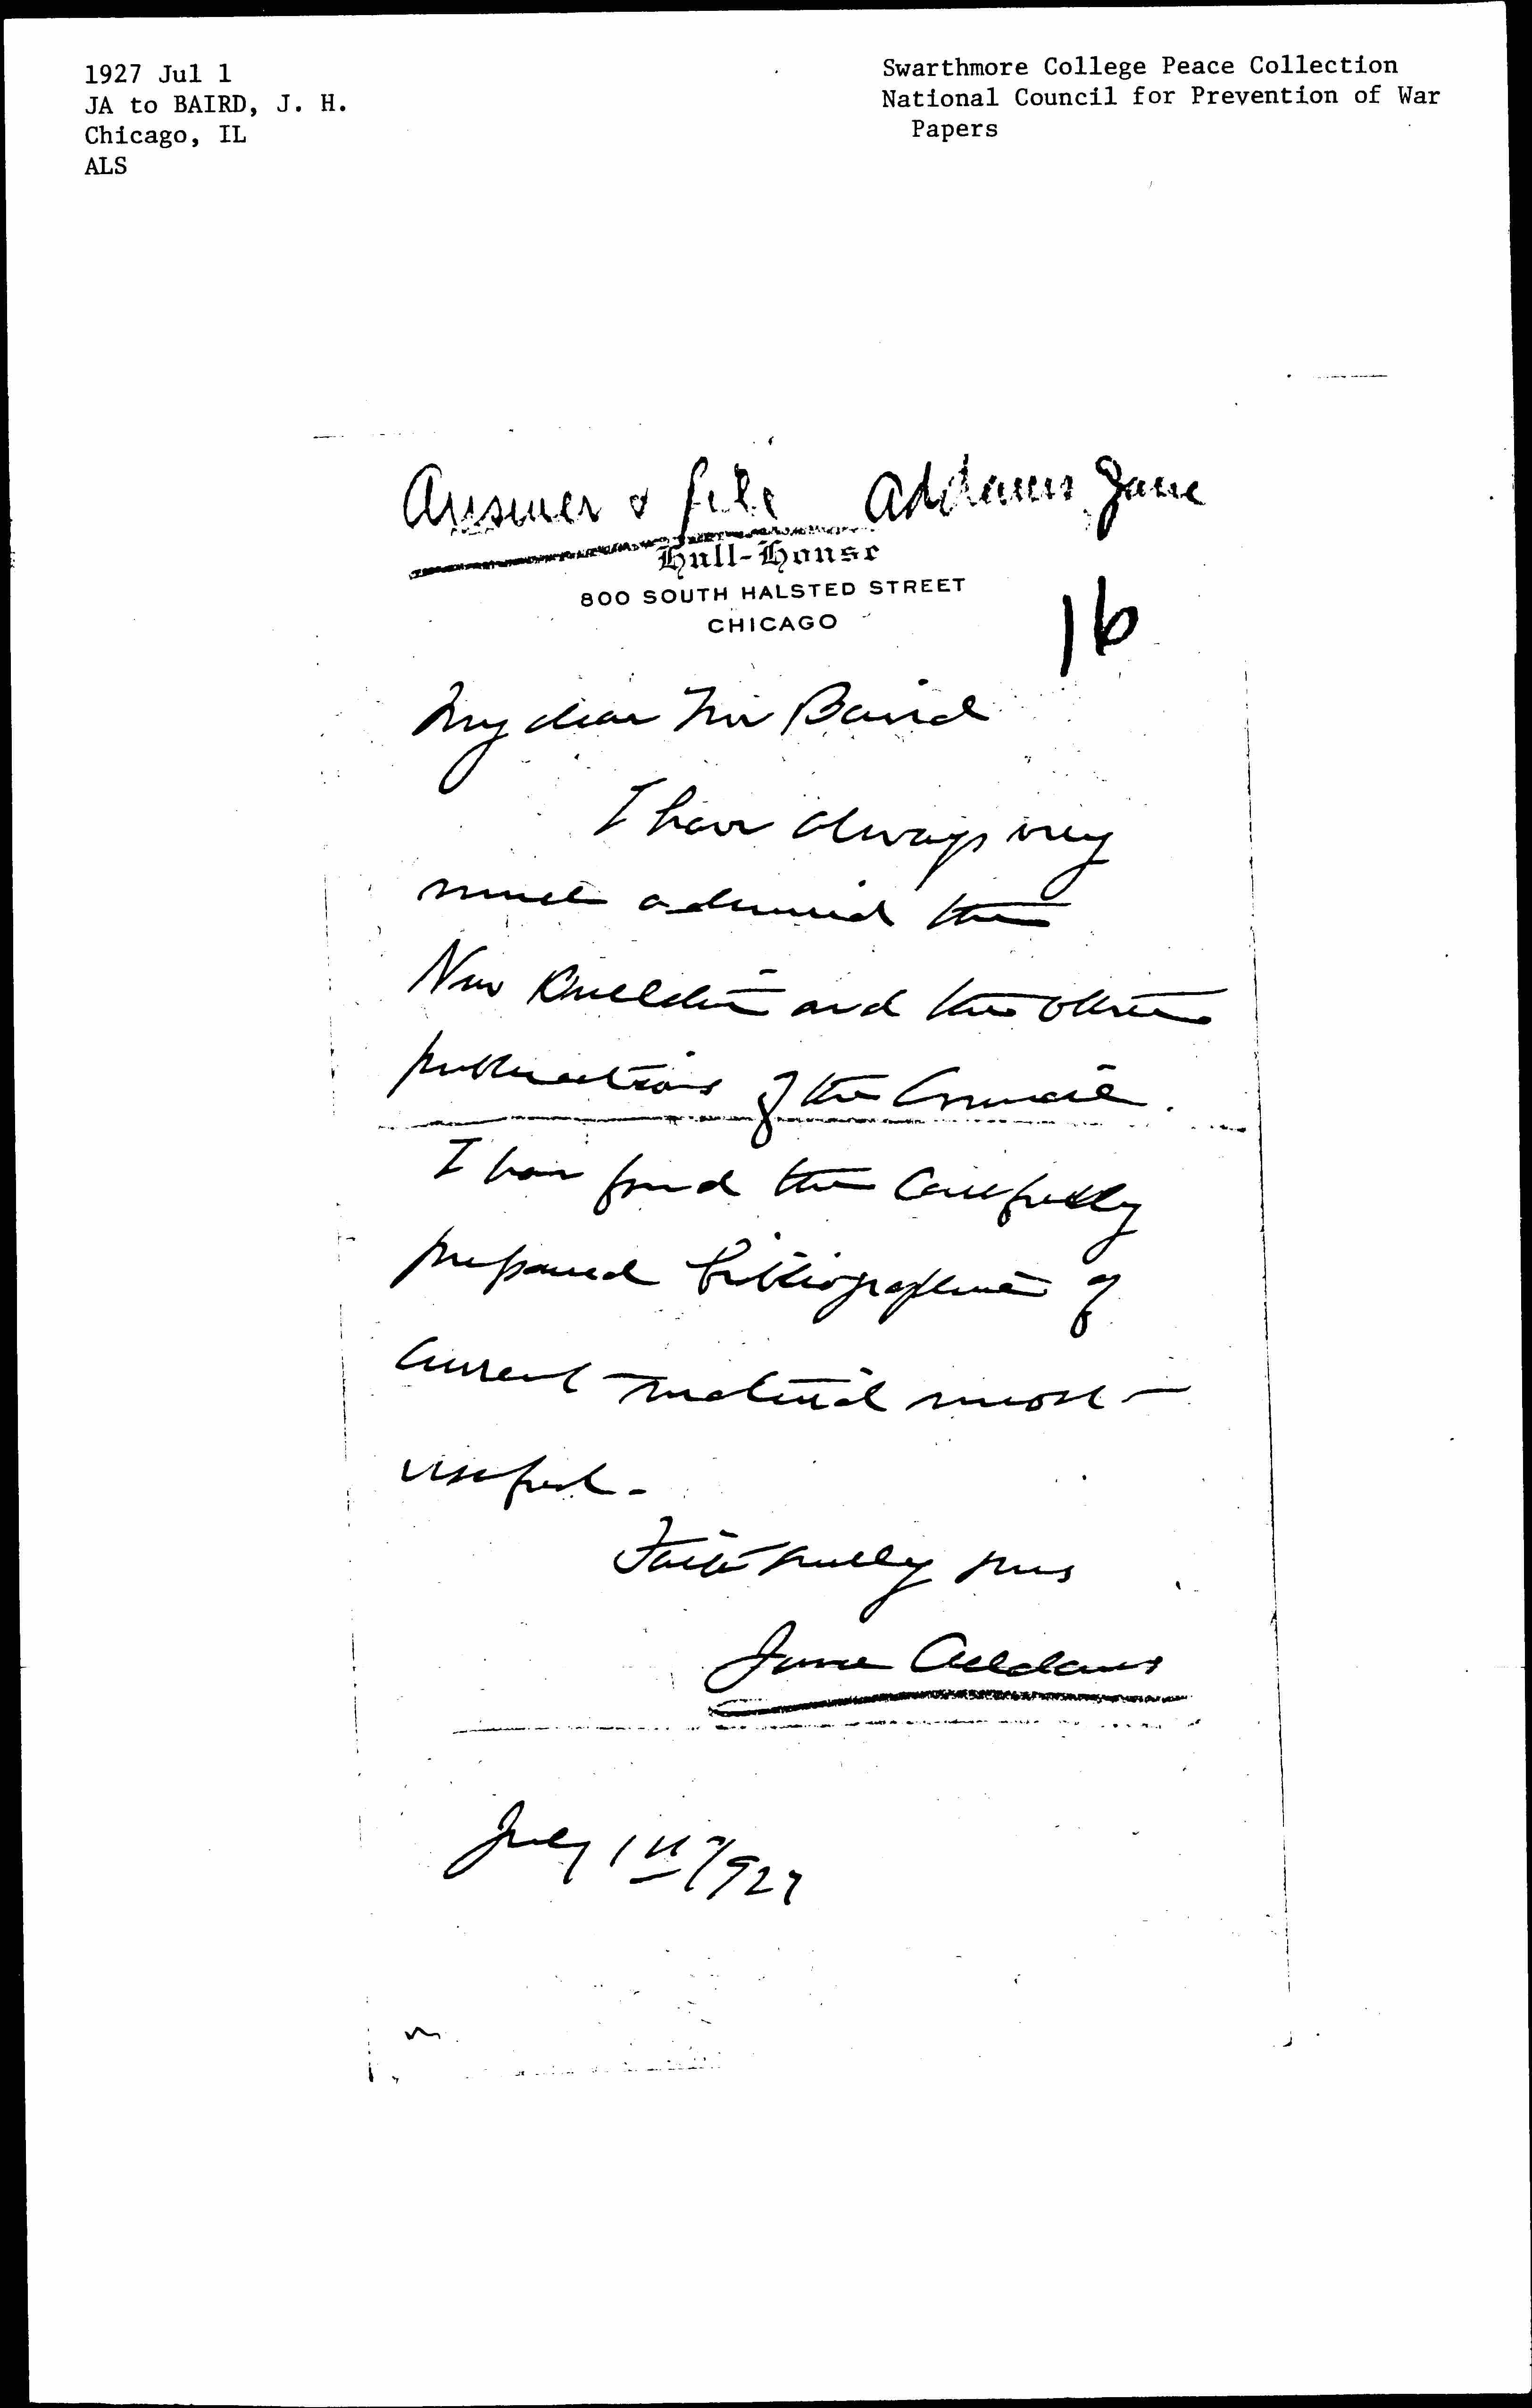 1927 Jul 1
JA to BAIRD, J. H.
Chicago, IL
ALS
Swarthmore College Peace Collection
National Council for Prevention of War
Papers
Answer & file Addams, Jane
Hull-House
800 SOUTH HALSTED STREET
CHICAGO
16
My dear Mr Baird
I have always very
much admired the
News Bulletin and the other
publications of the Council.
I have found the carefully
prepared bibliographies of
current material most
useful.
Faithfully yours
Jane Addams
July 1st 1927